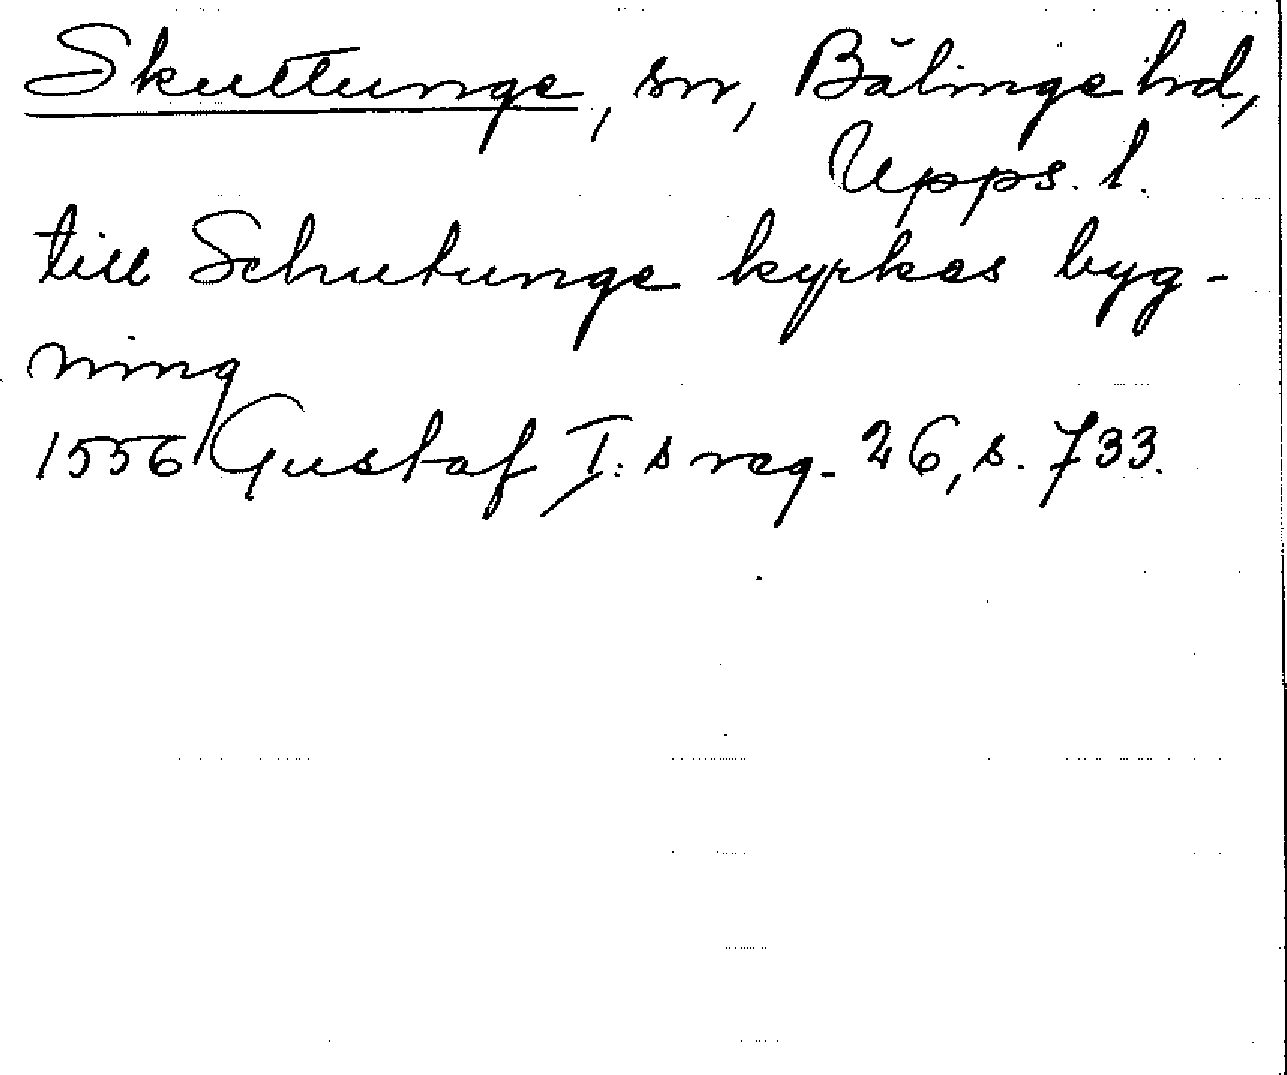 Skuttunge, sn, Bälinge hd,
Upps. l.
till Schutunge kyrkes byg-
ning
1556 Gustaf I:s reg. 26, s. 733.